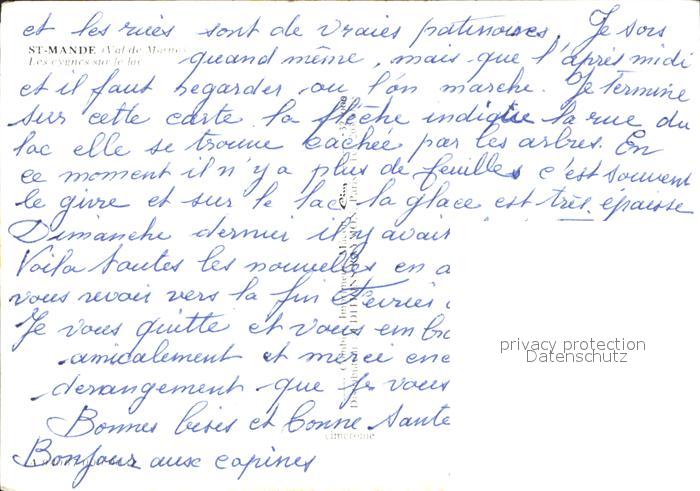 et les rues sont de vraies patinoires. Je sors
ST-MANDE (Val de Marne)
Les cygnes sur le lac
quand même, mais que l'après midi
et il faut regarder ou l'on marche. Je termine
sur cette carte la flèche indique la rue du
lac elle se trouve cachée par les arbres. En
ce moment il n'y a plus de feuilles c'est souvent
le givre et sur le lac la glace est très épaisse
Dimanche dernier il y avait
Voila toutes les nouvelles en a
vous revoir vers la fin Fevrier
Je vous quitte et vous em
amicalement et merci enc
derangement que je vous
Bonnes bises et bonne Sante
Bonjour aux copines
privacy protection
Datenschutz